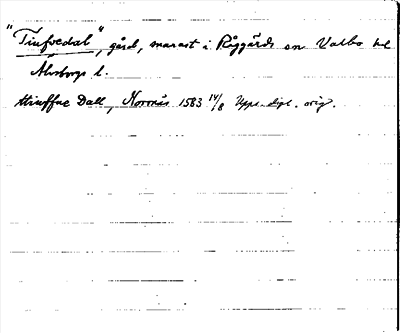 "Tiufvedal", gård, snarast i Råggärds sn Valbo hd
Älvsborgs l.
Stinffue Dall, Kornäs 1583 14/8 Upps. dipl. orig.